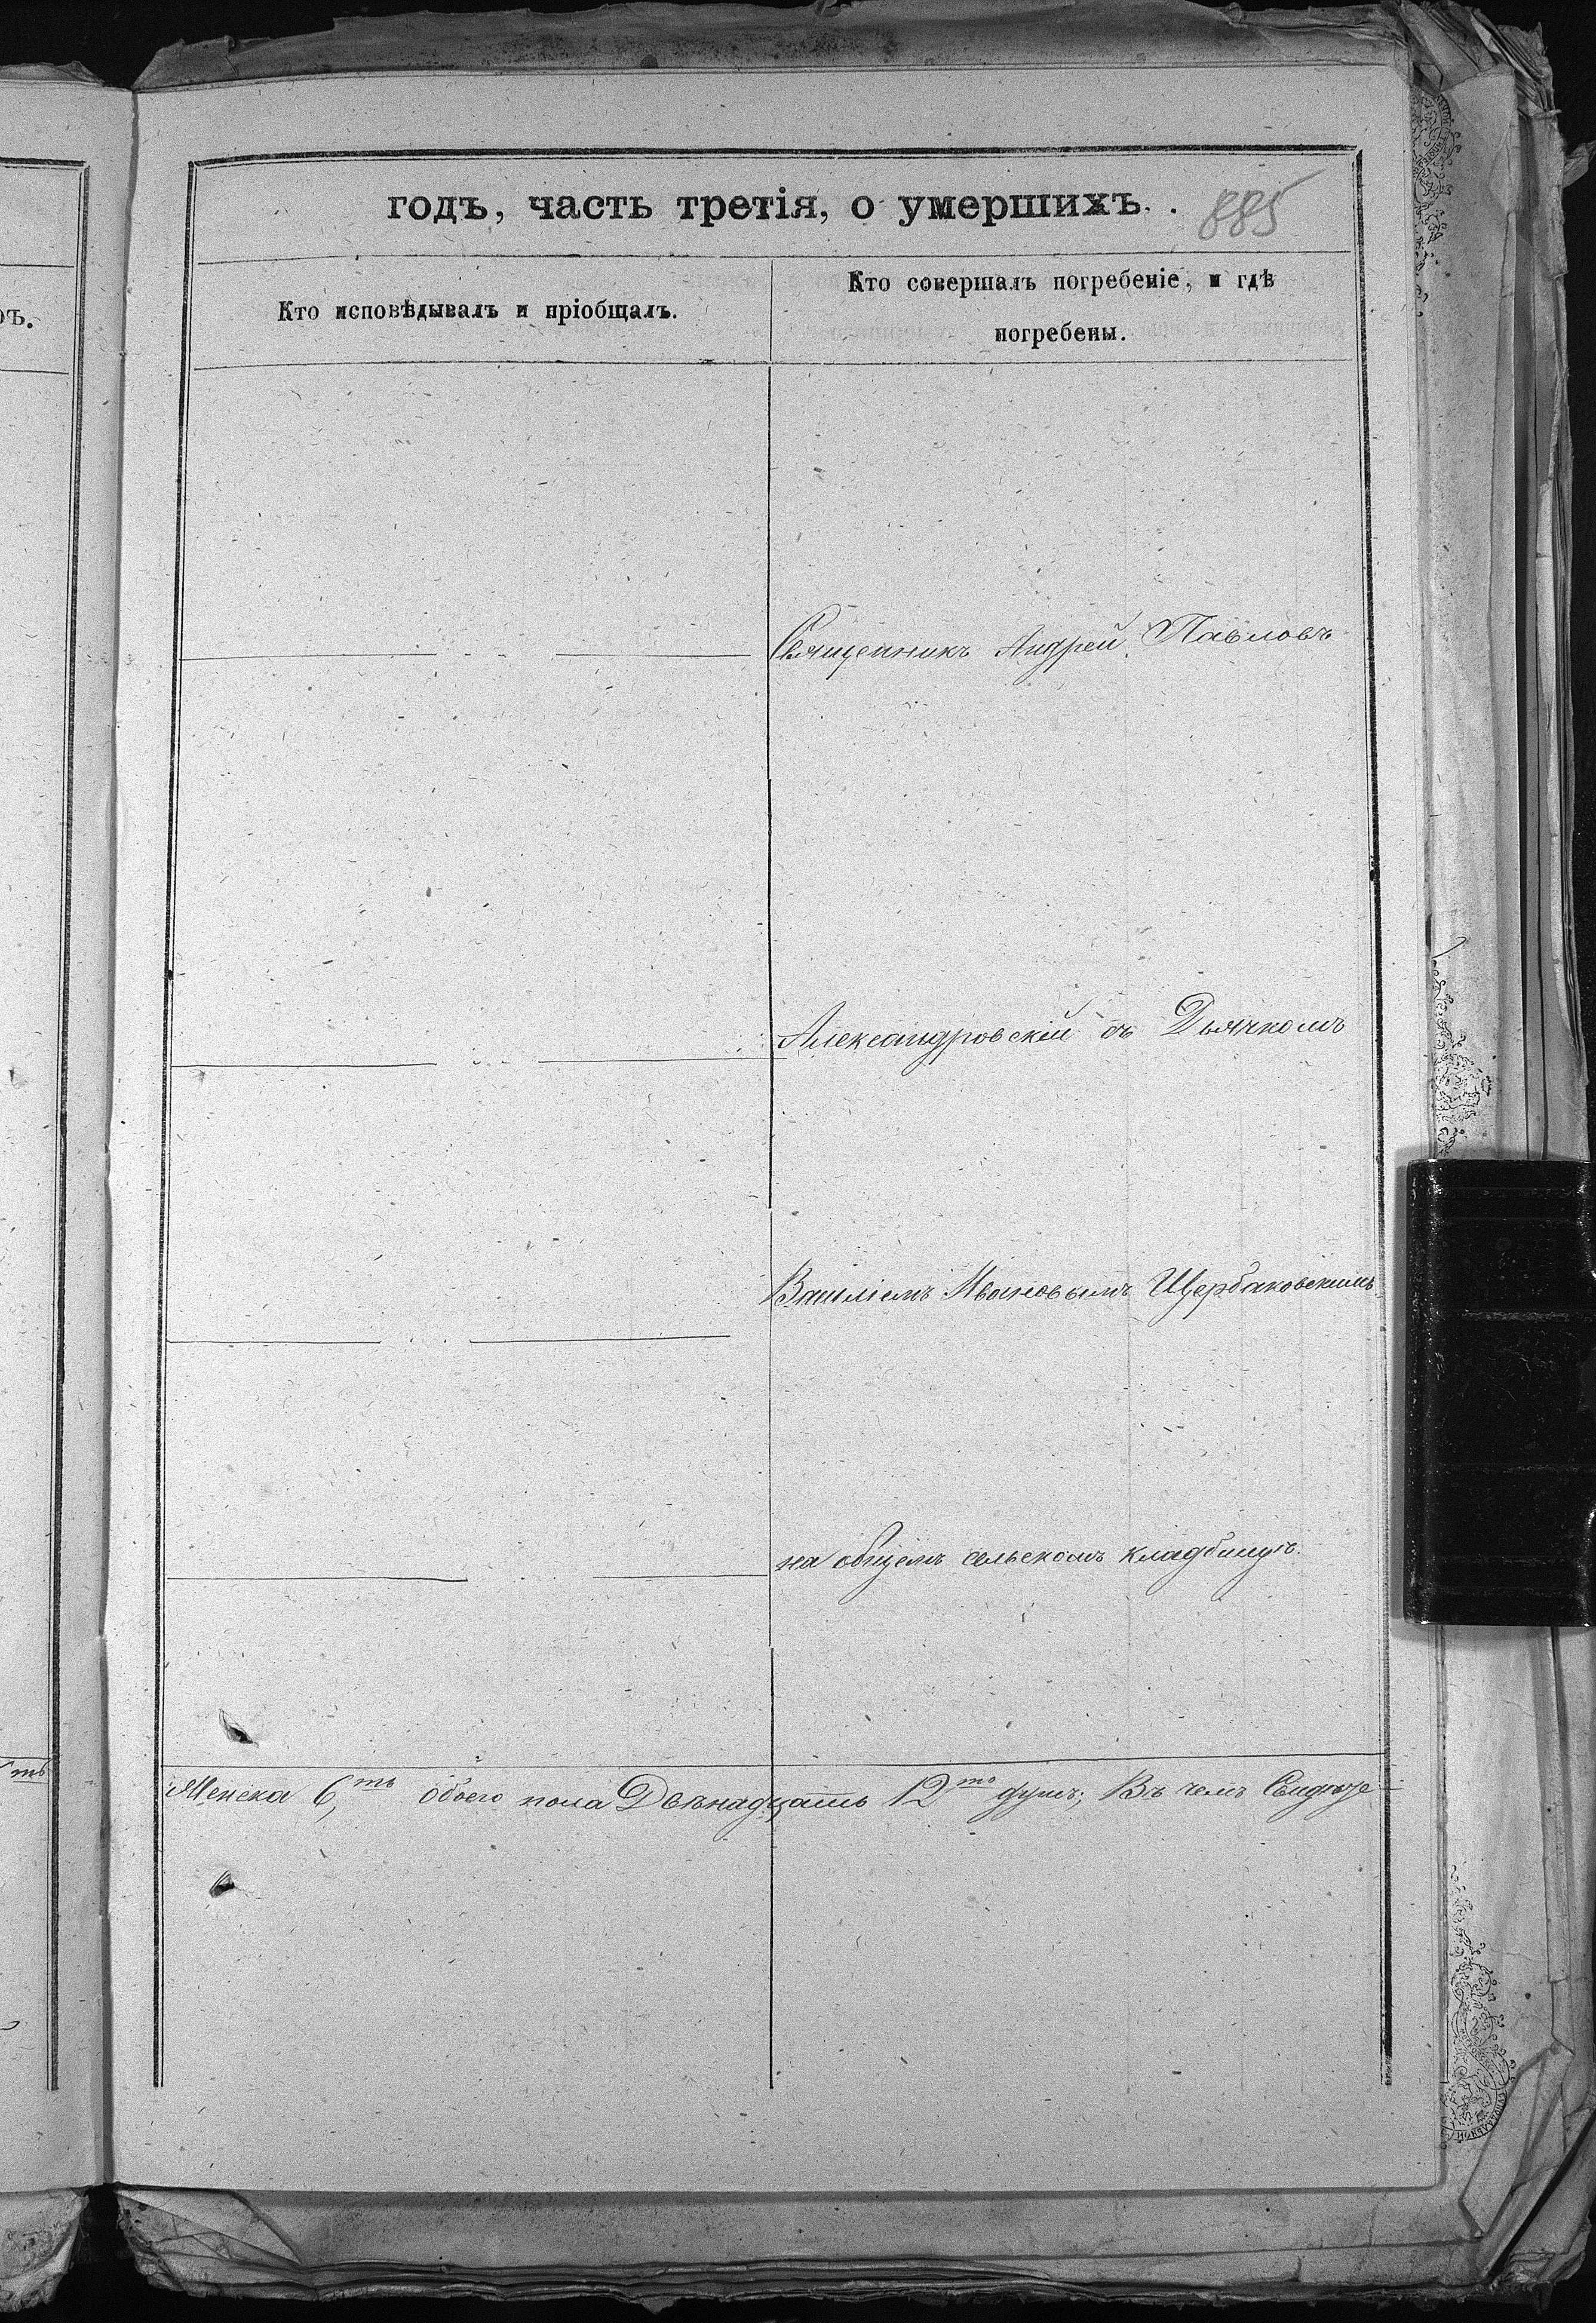 годъ, часть третія, о умершихъ. 885
Кто исповѣдывалъ и пріобщалъ.
Кто совершалъ погребеніе, и гдѣ
погребены.
Священникъ Андрей Павловъ
Александровскій съ Дьячкомъ
Василіемъ Ивановымъ Щербаковскимъ
на общемъ сельскомъ кладбищѣ.
Женска 6ть обоего пола Двѣнадцать 12ть душъ; Въ чемъ Свидѣте-